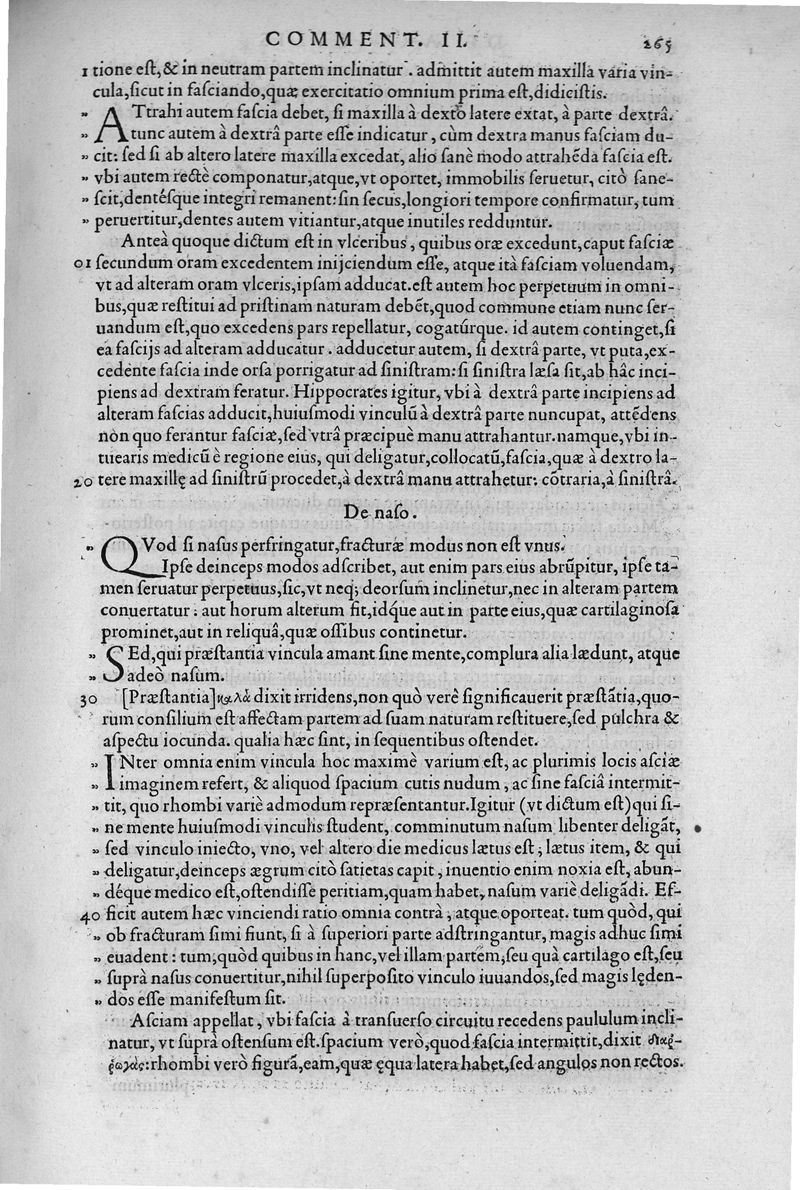 COMMENT. II. 265
1 tione eſt,& in neutram partem inclinatur . admittit autem maxilla varia vin-
cula,ſicut in faſciando,quæ exercitatio omnium prima eſt,didiciſtis.
„ ATtrahi autem faſcia debet, ſi maxilla à dextro latere extat, à parte dextrâ.
„ tunc autem à dextrâ parte eſſe indicatur, cùm dextra manus faſciam du-
„ cit: ſed ſi ab altero latere maxilla excedat, alio ſanè modo attrahẽda faſcia eſt.
„ vbi autem rectè componatur,atque,vt oportet, immobilis ſeruetur, citò ſane-
„ ſcit,dentéſque integri remanent:ſin ſecus,longiori tempore confirmatur, tum
„ peruertitur,dentes autem vitiantur,atque inutiles redduntur.
Anteà quoque dictum eſt in vlceribus, quibus oræ excedunt,caput faſciæ
01 ſecundum oram excedentem inijciendum eſſe, atque ità faſciam voluendam,
vt ad alteram oram vlceris,ipſam adducat.eſt autem hoc perpetuum in omni-
bus,quæ reſtitui ad priſtinam naturam debẽt,quod commune etiam nunc ſer-
uandum eſt,quo excedens pars repellatur, cogatúrque. id autem continget,ſi
ea faſcijs ad alteram adducatur . adducetur autem, ſi dextrâ parte, vt puta,ex-
cedente faſcia inde orſa porrigatur ad ſiniſtram:ſi ſiniſtra læſa ſit,ab hâc inci-
piens ad dextram feratur. Hippocrates igitur, vbi à dextrâ parte incipiens ad
alteram faſcias adducit,huiuſmodi vinculũ à dextrâ parte nuncupat, attẽdens
nòn quo ferantur faſciæ,ſed vtrâ præcipuè manu attrahantur.namque,vbi in-
tuearis medicũ è regione eius, qui deligatur,collocatũ,faſcia,quæ à dextro la-
20 tere maxillę ad ſiniſtrũ procedet,à dextrâ manu attrahetur: cõtraria,à ſiniſtrâ.
De naſo.
„ QVod ſi naſus perfringatur,fracturæ modus non eſt vnus.
Ipſe deinceps modos adſcribet, aut enim pars eius abrũpitur, ipſe ta-
men ſeruatur perpetuus,ſic,vt neq; deorſum inclinetur,nec in alteram partem
conuertatur : aut horum alterum fit,idq́ue aut in parte eius,quæ cartilaginoſa
prominet,aut in reliquâ,quæ oſſibus continetur.
„ SEd,qui præſtantia vincula amant ſine mente,complura alia lædunt, atque
„ adeò naſum.
30 [Præſtantia]καλὰ dixit irridens,non quò verè ſignificauerit præſtãtia,quo-
rum conſilium eſt affectam partem ad ſuam naturam reſtituere,ſed pulchra &
aſpectu iocunda. qualia hæc ſint, in ſequentibus oſtendet.
„ INter omnia enim vincula hoc maximè varium eſt, ac plurimis locis aſciæ
„ imaginem refert, & aliquod ſpacium cutis nudum, ac ſine faſciâ intermit-
„ tit, quo rhombi variè admodum repræſentantur.Igitur (vt dictum eſt)qui ſi-
„ ne mente huiuſmodi vinculis ſtudent, comminutum naſum libenter deligãt,
„ ſed vinculo iniecto, vno, vel altero die medicus lætus eſt, lætus item, & qui
„ deligatur,deinceps ægrum citò ſatietas capit, inuentio enim noxia eſt, abun-
„ déque medico eſt,oſtendiſſe peritiam,quam habet, naſum variè deligãdi. Ef-
40 ficit autem hæc vinciendi ratio omnia contrà, atque oporteat. tum quòd, qui
„ ob fracturam ſimi fiunt, ſi à ſuperiori parte adſtringantur, magis adhuc ſimi
„ euadent : tum,quòd quibus in hanc,vel illam partem,ſeu quà cartilago eſt,ſeu
„ ſuprà naſus conuertitur,nihil ſuperpoſito vinculo iuuandos,ſed magis lęden-
„ dos eſſe manifeſtum ſit.
Aſciam appellat, vbi faſcia à tranſuerſo circuitu recedens paululum incli-
natur, vt ſuprà oſtenſum eſt.ſpacium verò,quod faſcia intermittit,dixit διαῤ-
ῥωγὰς:rhombi verò figurã,eam,quæ ęqua latera habet,ſed angulos non rectos.